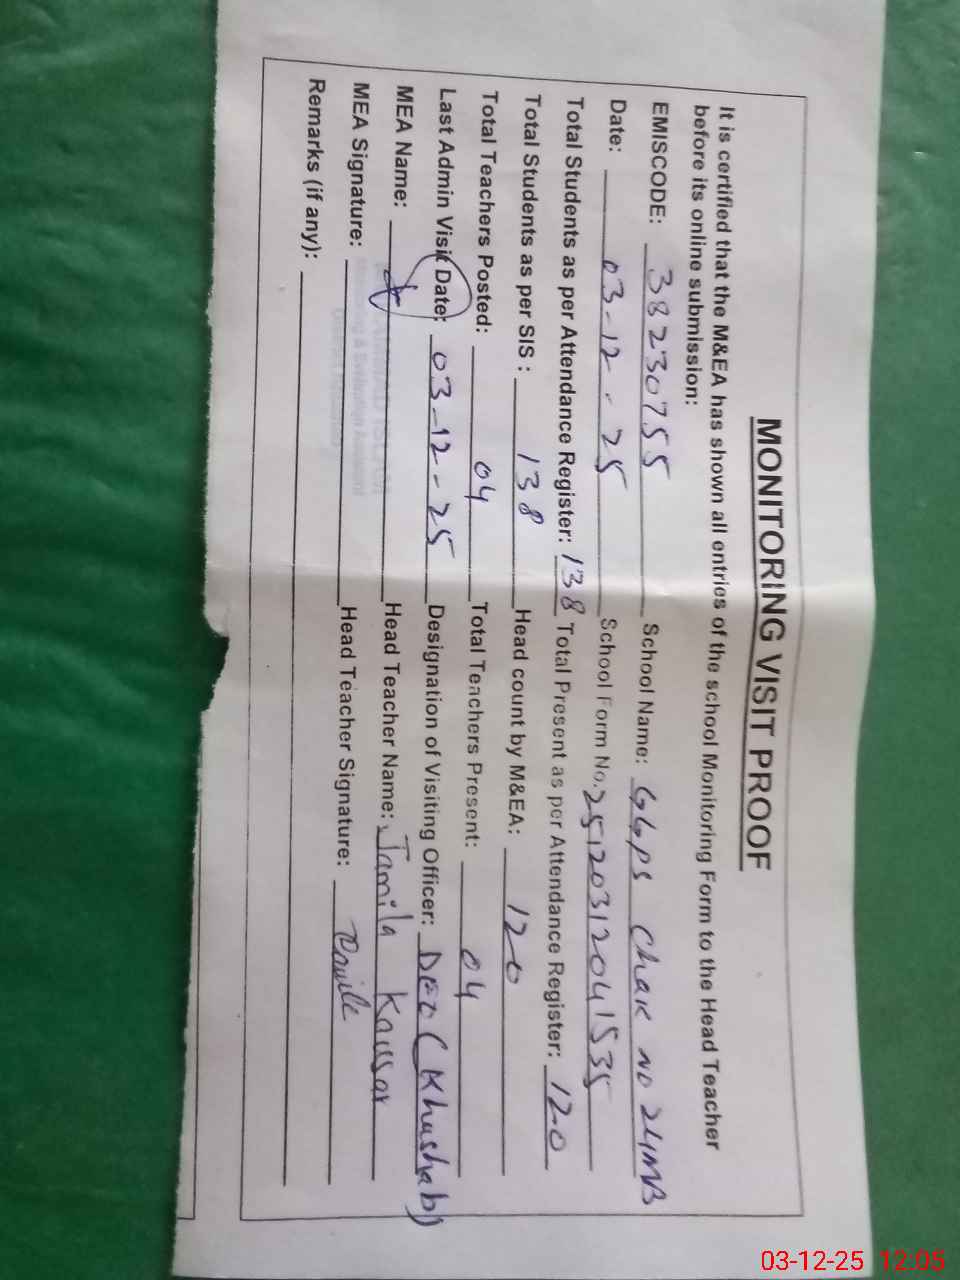 MONITORING VISIT PROOF
It is certified that the M&EA has shown all entries of the school Monitoring Form to the Head Teacher
before its online submission:
EMISCODE: 38230755 School Name: GGPS Chak No 24MB
Date: 03-12-25 School Form No. 25,20312041535
Total Students as per Attendance Register: 138 Total Present as per Attendance Register: 120
Total Students as per SIS : 138 Head count by M&EA: 120
Total Teachers Posted: 04 Total Teachers Present: 04
Last Admin Visit Date: 03-12-25 Designation of Visiting Officer: DEO (Khushab)
MEA Name: Head Teacher Name: Jamila Kausar
MEA Signature: Head Teacher Signature:
Remarks (if any):
03-12-25 12:05